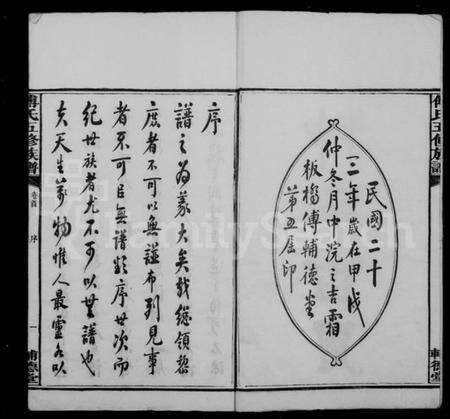 民國二十
三年歲在甲戌
仲冬月中浣之吉霜
板橋傅輔德堂
第五屆印
傅氏五修族譜
輔德堂
序
譜之為義大矣哉總領黎
庶者不可以無謚布列見事
者不可以無譜類序世次而
紀世族者尤不可以無譜也
夫天生萬物惟人最靈所以
傅氏五修族譜
卷首
序
一
輔德堂
FamilySearch